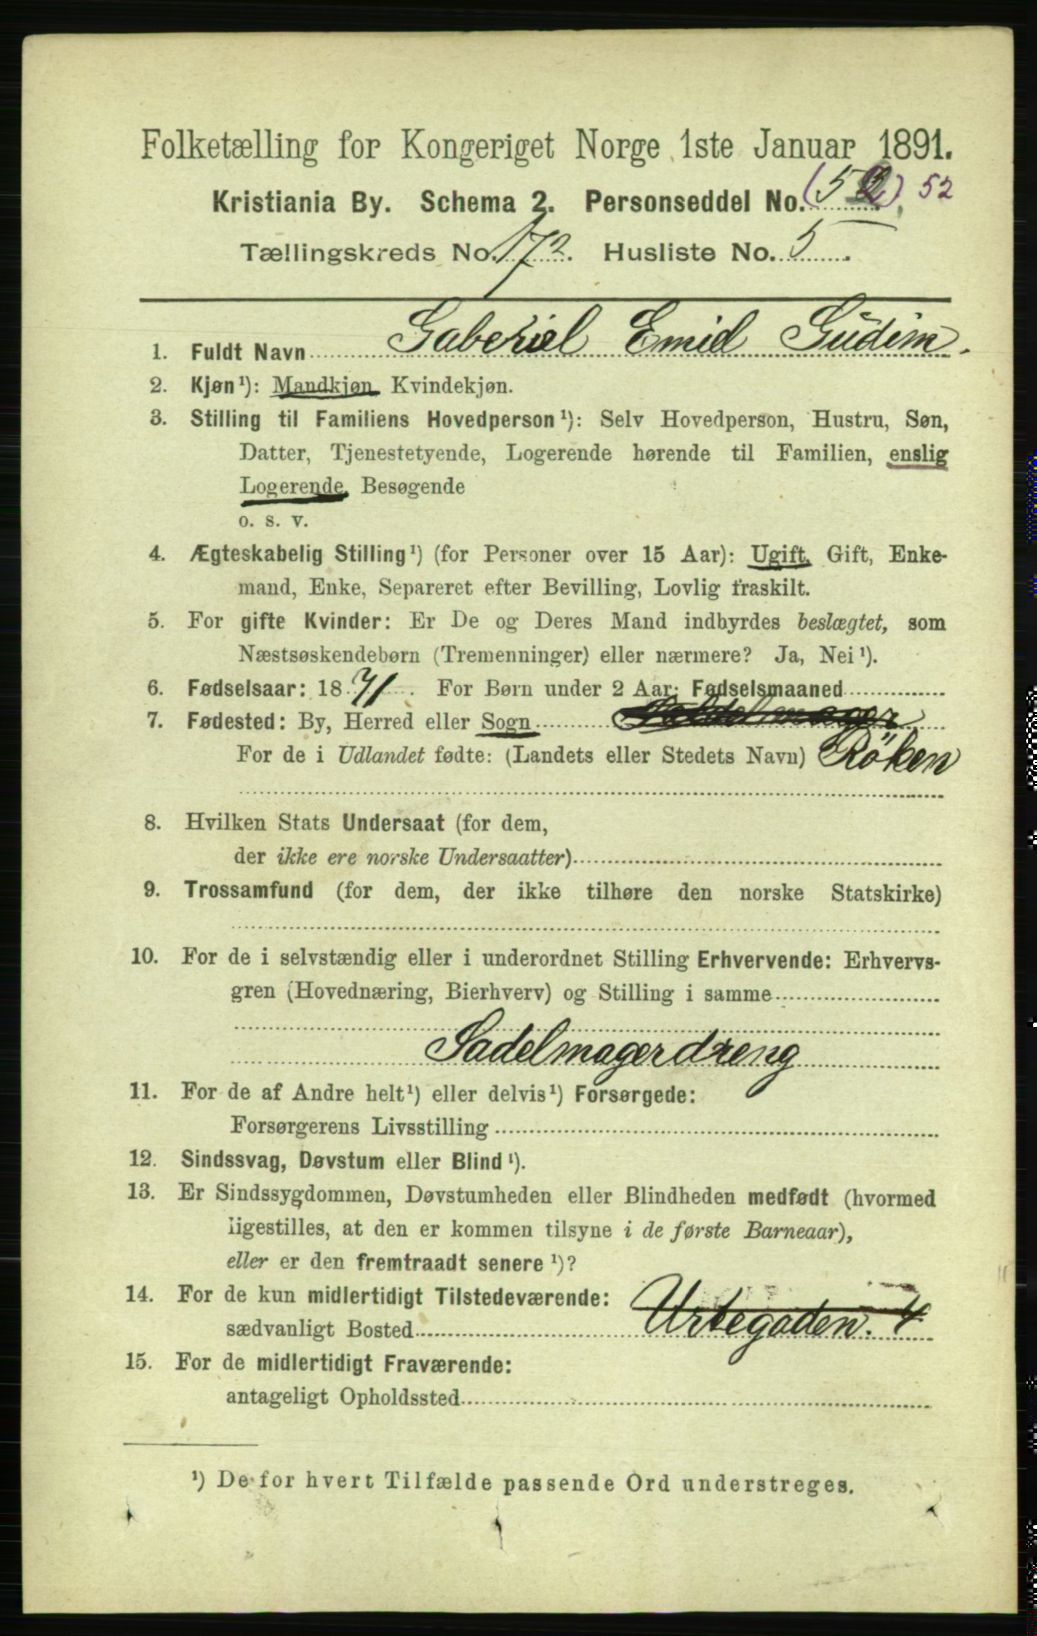 Folketælling for Kongeriget Norge 1ste Januar 1891.
Kristiania By. Schema 2. Personseddel No. (52) 52
Tællingskreds No. 172. Husliste No. 5.
1. Fuldt Navn Gaberiel Emiel Gudim.
2. Kjøn¹): Mandkjøn, Kvindekjøn.
3. Stilling til Familiens Hovedperson¹): Selv Hovedperson, Hustru, Søn,
Datter, Tjenestetyende, Logerende hørende til Familien, enslig
Logerende, Besøgende
o. s. v.
4. Ægteskabelig Stilling¹) (for Personer over 15 Aar): Ugift, Gift, Enke-
mand, Enke, Separeret efter Bevilling, Lovlig fraskilt.
5. For gifte Kvinder: Er De og Deres Mand indbyrdes beslægtet, som
Næstsøskendebørn (Tremenninger) eller nærmere? Ja, Nei¹).
6. Fødselsaar: 1871. For Børn under 2 Aar: Fødselsmaaned
7. Fødested: By, Herred eller Sogn
For de i Udlandet fødte: (Landets eller Stedets Navn) Røken
8. Hvilken Stats Undersaat (for dem,
der ikke ere norske Undersaatter)
9. Trossamfund (for dem, der ikke tilhøre den norske Statskirke)
10. For de i selvstændig eller i underordnet Stilling Erhvervende: Erhvervs-
gren (Hovednæring, Bierhverv) og Stilling i samme
Sadelmagerdreng
11. For de af Andre helt¹) eller delvis¹) Forsørgede:
Forsørgerens Livsstilling
12. Sindssvag, Døvstum eller Blind¹).
13. Er Sindssygdommen, Døvstumheden eller Blindheden medfødt (hvormed
ligestilles, at den er kommen tilsyne i de første Barneaar),
eller er den fremtraadt senere¹)?
14. For de kun midlertidigt Tilstedeværende:
sædvanligt Bosted Urtegaden. 4
15. For de midlertidigt Fraværende:
antageligt Opholdssted
¹) De for hvert Tilfælde passende Ord understreges.